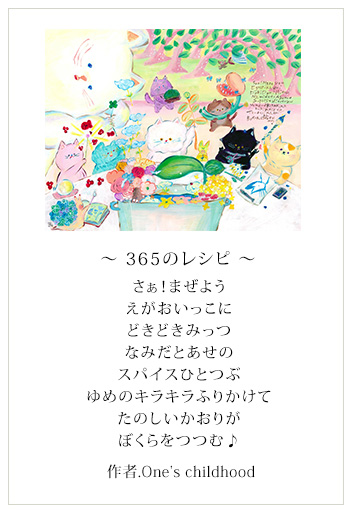 ～ 365のレシピ ～
さぁ！まぜよう
えがおいっこに
どきどきみっつ
なみだとあせの
スパイスひとつぶ
ゆめのキラキラふりかけて
たのしいかおりが
ぼくらをつつむ♪
作者.One's childhood